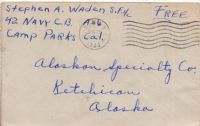 Stephen A. Waden S.F.1/c FREE
42 Navy C.B. A-6
Camp Parks Cal.
1944
Alaskan Specialty Co.
Ketchican
Alaska